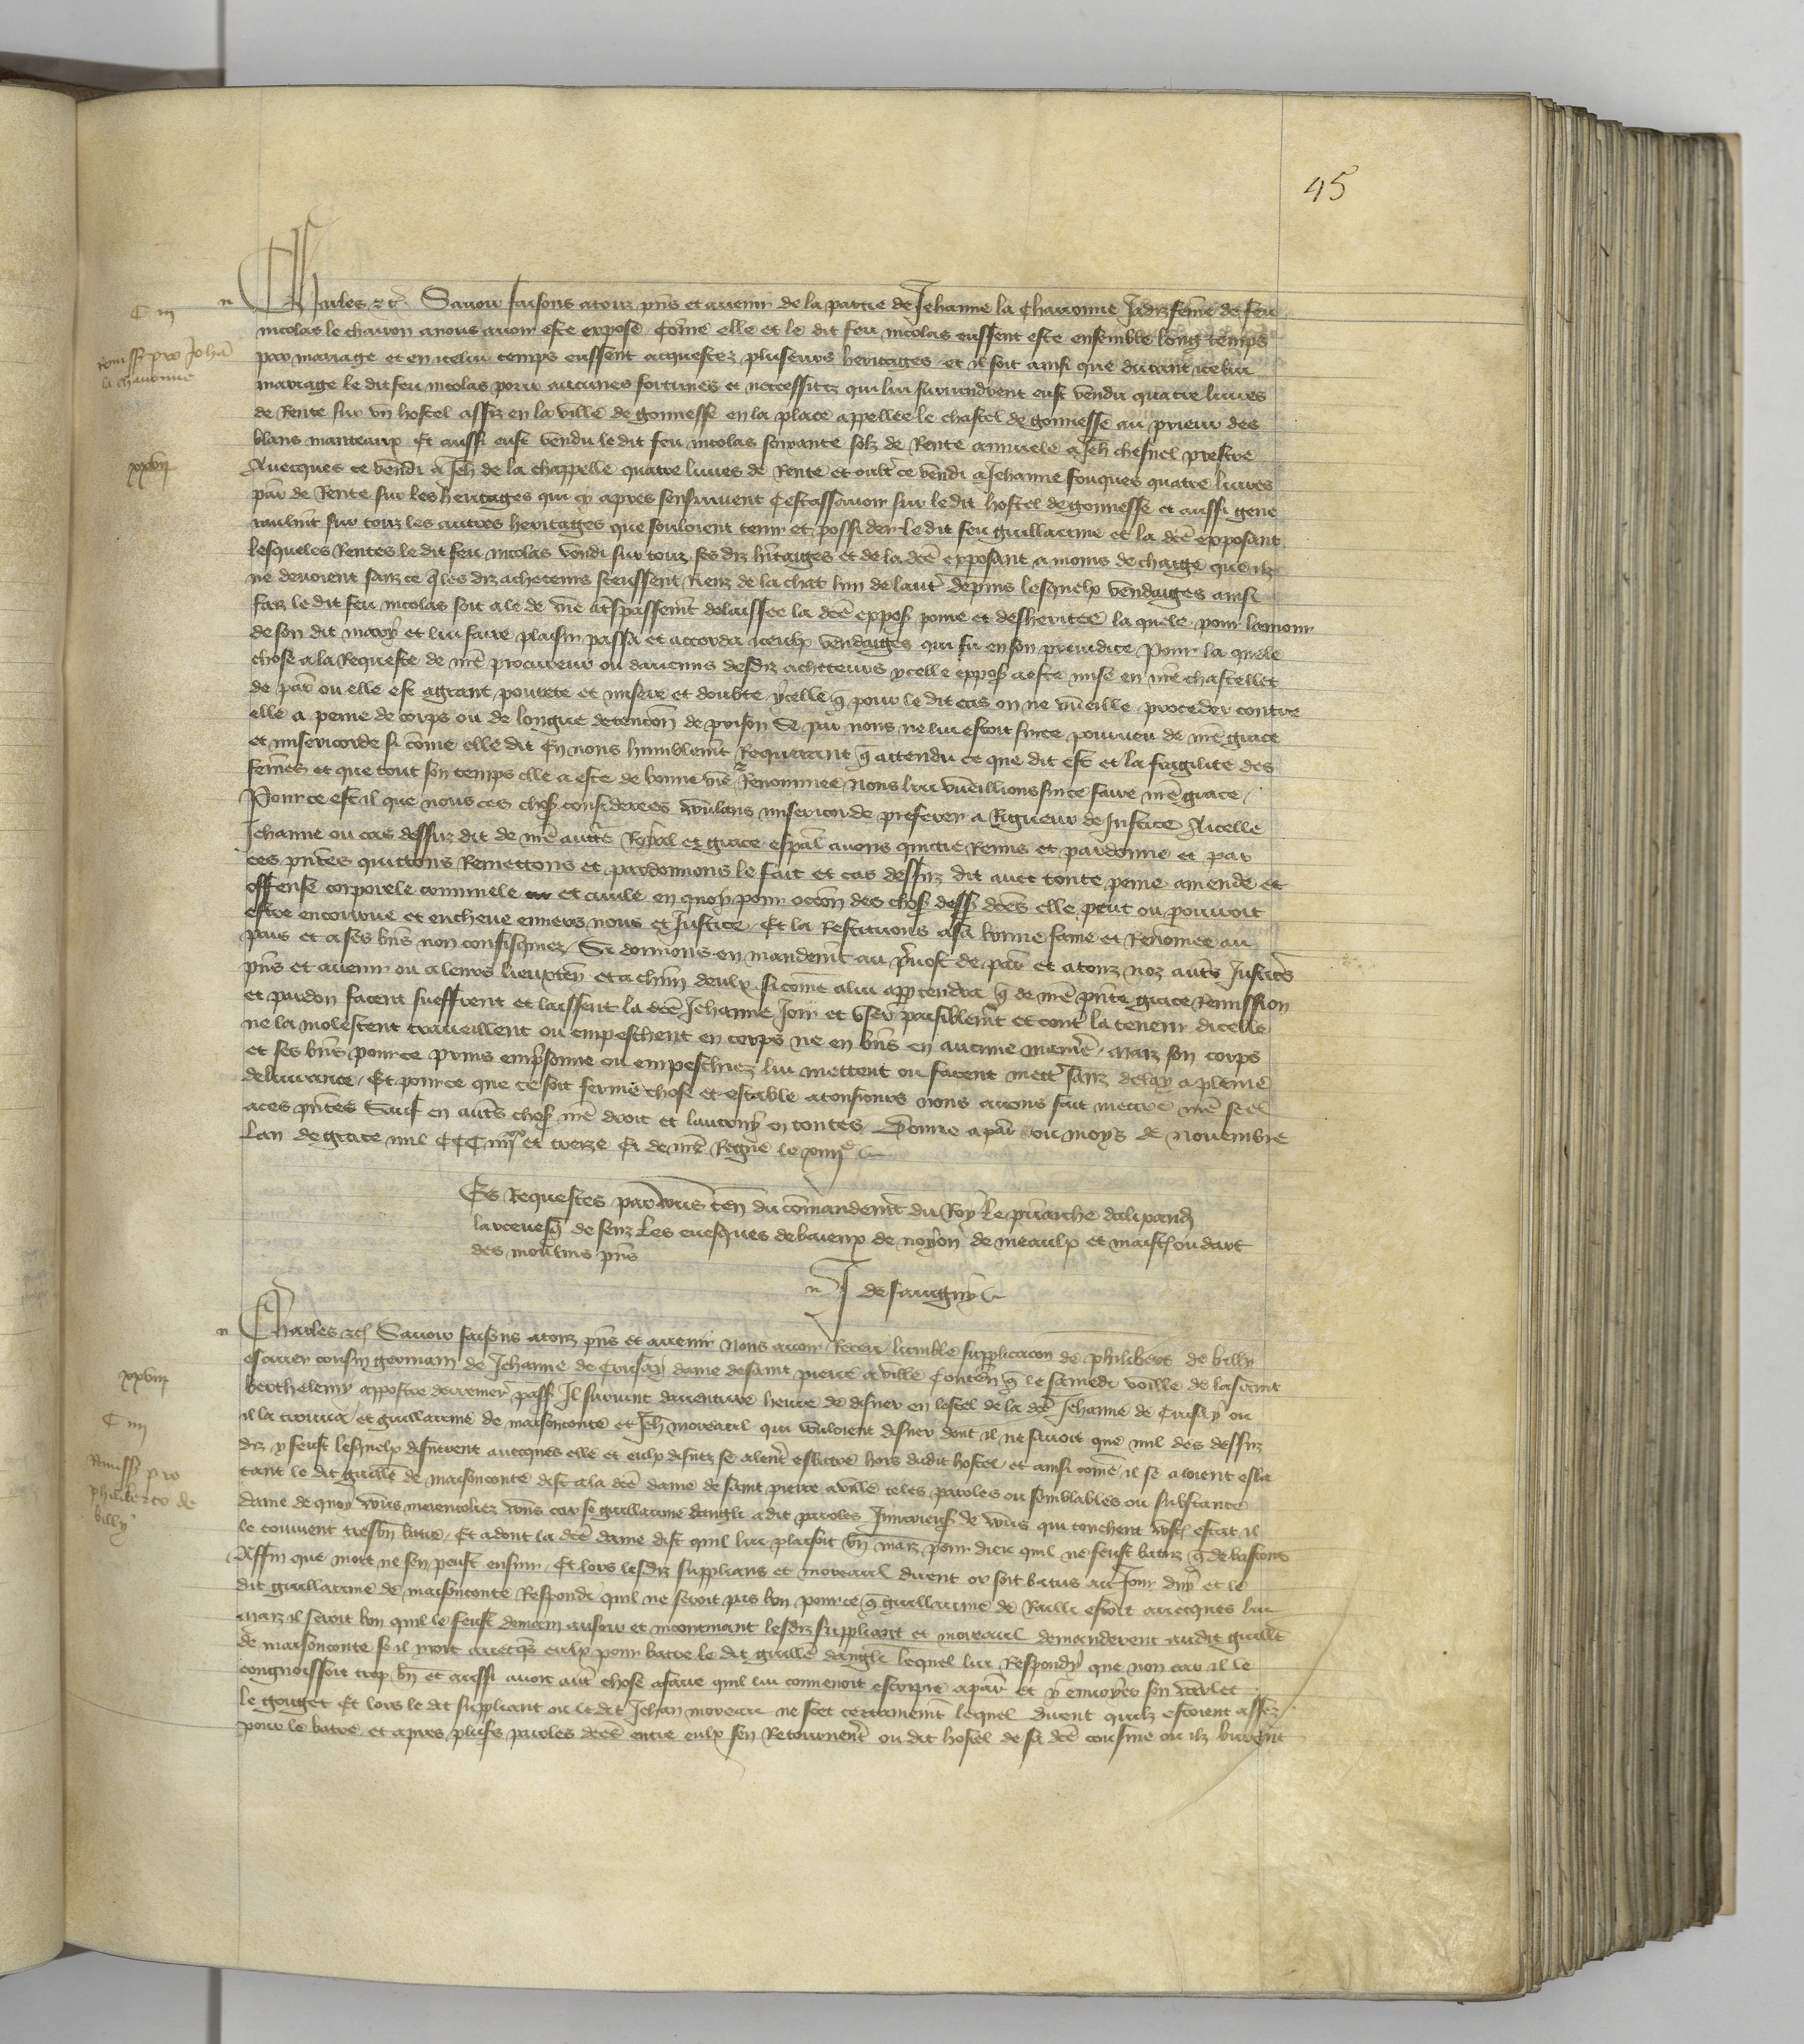 45
n
Charles etc. Savoir faisons a touz pns et avenir de la partie de Jehanne la Charronne Jadiz feme de feu
C iii
nicolas le charron a nous avoir este expose Come elle et le dit feu nicolas eussent este ensemble long temps
remiss pro Joha
la charonne
par mariage et en icelui temps eussent acquestez pluseurs heritages et il soit ainsi que durant icelui
mariage le dit feu nicolas pour aucunes fortunes et neccessitez qui lui survindrent eust vendu quatre livres
de Rente sur un hostel assiz en la ville de gonnesse en la place appellee le chastel de gonnesse au prieur des
blans manteaux Et aussi eust vendu le dit feu nicolas soixante solz de Rente annuele a Jeh chesnel prestre
xxvii
Avecques ce vendi a Jeh de la chappelle quatre livres de Rente et oultre ce vendi a Jehanne fouques quatre livres
par de Rente sur les heritages qui cy apres sensuivent Cestassavoir sur le dit hostel de gonnesse et aussi gene
raulmt sur touz les autres heritages que souloient tenir et possider le dit feu guillaume et la dce exposant
lesqueles Rentes le dit feu nicolas vendi sur touz ses diz hitaiges et de la dce exposant a moins de charge que ilz
ne devoient sanz ce q les diz acheteurs sceussent Rienz de lachat lun de laut depuis lesquelx vendaiges ainsi
faiz le dit feu nicolas soit ale de vie a tspassemt delaissee la dce expos povre et desheritee la quele pour lamour
de son dit mary et lui faire plaisir passa et accorda iceulx vendaiges qui fu en son preiudice Pour la quele
chose a la Requeste de nre procureur ou daucuns desdiz acheteurs ycelle expos a este mise en nre chastellet
de par ou elle est a grant povrete et misere et doubte ycelle q pour le dit cas on ne vueille proceder contre
elle a peine de corps ou de longue detencon de prison Se par nous ne lui estoit sur ce pourveu de nre grace
et misericorde si come elle dit En nous humblemt Requerant q attendu ce que dit est et la fragilite des
femes et que tout son temps elle a este de bonne vie et Renommee nous lui vueillions sur ce faire nre grace
Pour ce est il que nous ces chos considerees voulans misericorde preferer a Rigueur de Justice A icelle
Jehanne ou cas dessuz dit de nre auctte Royal et grace espal avons quictie Remis et pardonne et par
ces pntes quittons Remettons et pardonnons le fait et cas dessuz dit avec toute peine amende et
offense corporele criminele et civile en quoy pour occon des chos dess dces elle peut ou pourroit
estre encorrue et encheue envers nous et Justice Et la Restituons a sa bonne fame et Renomee au
pais et a ses bns non confisquez Si donnons en mandemt au pvost de par et a touz noz auts Justiciers
pns et avenir ou a leurs lieuxten et a chun deulx si come a lui appartendra q de nre pnte grace Remission
et pardon facent sueffrent et laissent la dce Jehanne Joir et user paisiblemt et contre la teneur dicelle
ne la molestent traveillent ou empeschent en corps ne en bns en aucune maniere Maiz son corps
et ses bns pour ce prins empsonne ou empeschiez lui mettent ou facent mettre sanz delay a pleine
delivrance Et pour ce que ce soit ferme chose et estable a tousiours nous avons fait mettre nre seel
a ces pntes Sauf en auts chos nre droit et lautruy en toutes Donne a par ou moys de Novembre
Lan de grace mil CCC iiiixx et treze Et de nre Regne le xiiiie
Es Requestes par vous ten du comandemt du Roy Le priarche dalixand
larcevesq de sens Les evesques de baieux de noyon de meaulx et maist oudart
des moulins pns
n J de sauvigny
n
Charles etc Savoir faisons a touz pns et avenir Nous avoir Receu lumble supplicacon de philibert de billy
xxviii
escuier cousin germain de Jehanne de Crusay dame de saint pierre a ville Conten q le samedi voille de la saint
berthelemy appostre derremer pass Il survint daventure heure de disner en lostel de la dce Jehanne de Crusay ou
C iiii
il la trouva et guillaume de maisonconte et Jeh moreaul qui vouloient disner dont il ne savoit que nul des dessuz
diz y feust lesquelx disnerent avecques elle et eulx disnez se alerent esbatre hors dudit hostel et ainsi come il se aloient esba
Remiss pro
philiberto de
billy
tant le dit guille de maisonconte dist a la dce dame de saint pierre a ville teles paroles ou semblables en substance
dame de quoy vous merencoliez vous car se guillaume dangle a dit paroles Injurieus de vous qui touchent vost estat il
le convient tresbn batre Et adont la dce dame dist quil lui plaisoit bn maiz pour dieu quil ne feust batuz q de bastons
Affin que mort ne sen peust ensuir Et lors lesdiz supplians et moreaul dirent or soit batus au Jour duy et le
dit guillaume de maisonconte Respondi quil ne seroit pas bon pour ce q guillaume de Railli estoit avecques lui
Maiz il seroit bon quil le feust demain au soir et incontinant lesdiz suppliant et moreaul demanderent au dit guille
de maisonconte se il iroit avecqs eulx pour batre le dit guille dangle lequel lui Respondy que non car il le
congnoissoit trop bn et aussi avoit aut chose a faire quil lui convenoit escripre a par et y envoyer son varlet
le gouget Et lors le dit suppliant ou le dit Jehan moreau ne scet certainemt lequel dirent quilz estoient assez
pour le batre et apres pluss paroles dces entre eulx sen Retournert ou dit hostel de sa dce cousine ou ilz burent